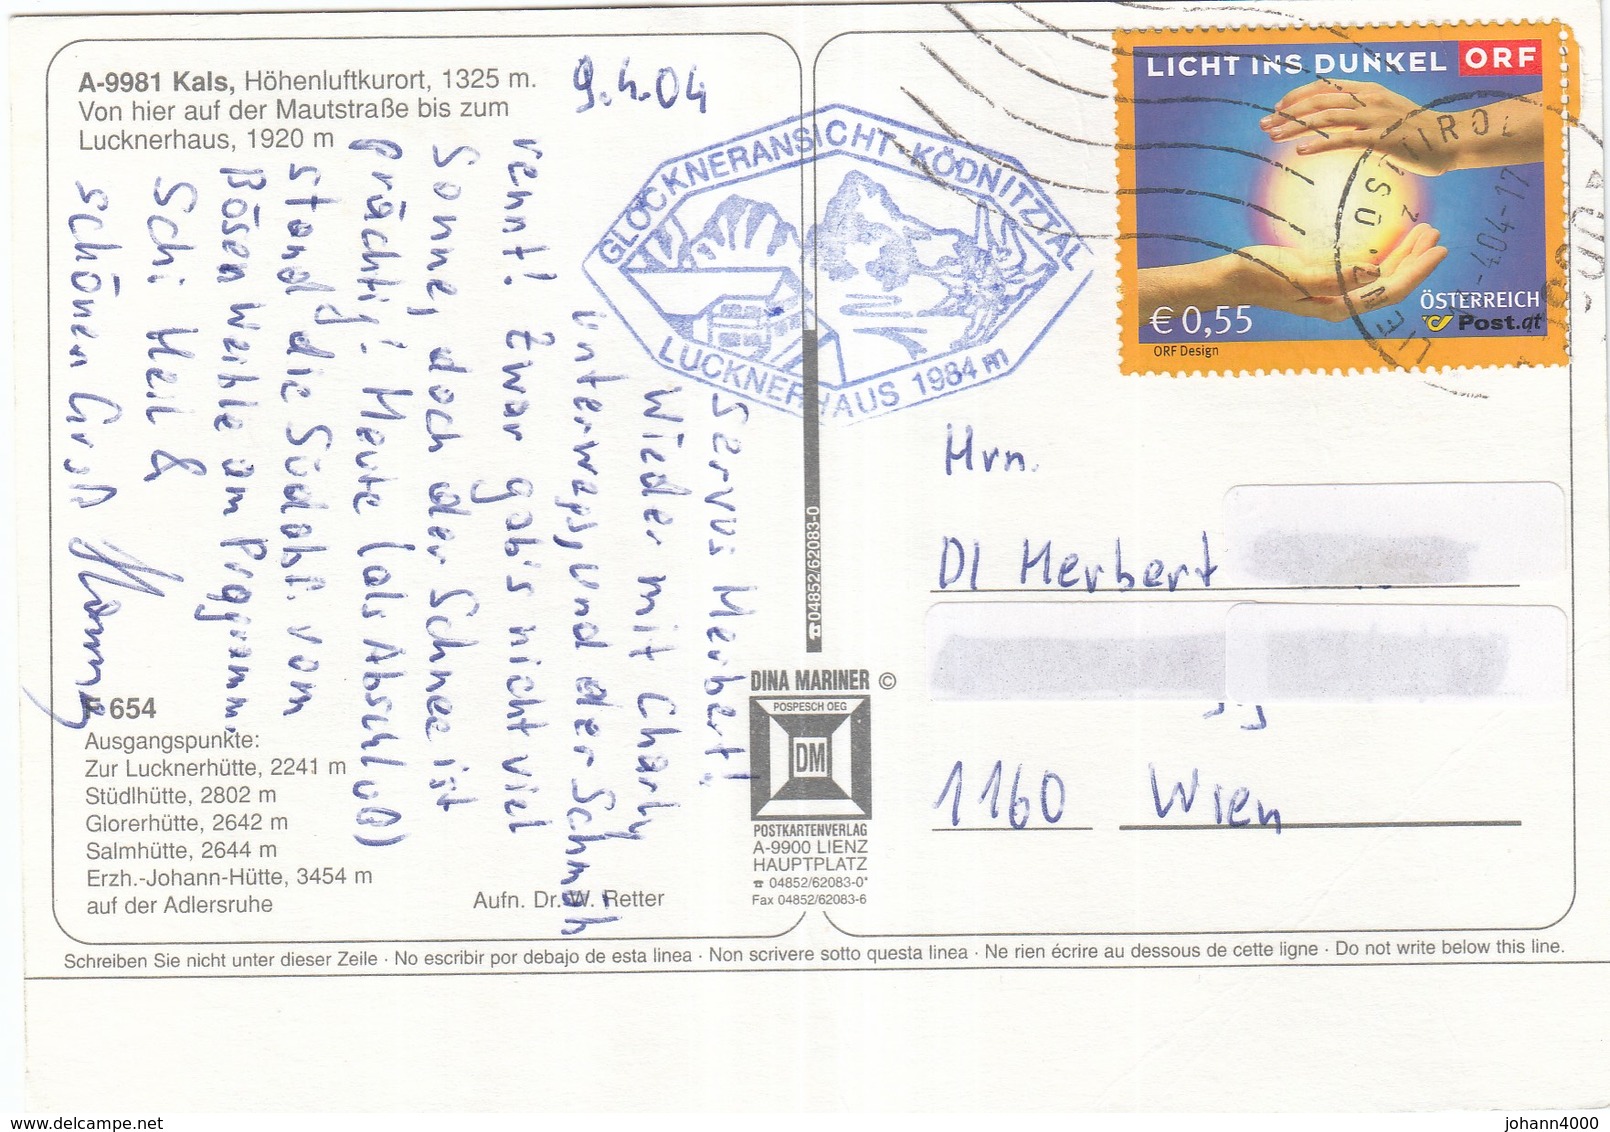 A-9981 Kals, Höhenluftkurort, 1325 m.
Von hier auf der Mautstraße bis zum
Lucknerhaus, 1920 m
9.4.04
Servus Herbert!
Wieder mit Charly
unterwegs, und der Schmäh
rennt! Zwar gab's nicht viel
Sonne, doch der Schnee ist
prächtig! Heute (als Abschluß)
stand die Südabf. vom
Bösen Weibele am Programm.
Schi Heil &
schönen Gruß
F 654
Ausgangspunkte:
Zur Lucknerhütte, 2241 m
Stüdlhütte, 2802 m
Glorerhütte, 2642 m
Salmhütte, 2644 m
Erzh.-Johann-Hütte, 3454 m
auf der Adlersruhe
Aufn. Dr. W. Retter
GLOCKNERANSICHT-KÖDNITZTAL
LUCKNERHAUS 1984 m
☎04852/62083-0
DINA MARINER ©
POSPESCH OEG
DM
POSTKARTENVERLAG
A-9900 LIENZ
HAUPTPLATZ
☎ 04852/62083-0*
Fax 04852/62083-6
LICHT INS DUNKEL ORF
€ 0,55
ÖSTERREICH
Post.at
ORF Design
LIENZ. OSTTIROL
4.04-17
Hrn.
DI Herbert
1160 Wien
Schreiben Sie nicht unter dieser Zeile · No escribir por debajo de esta linea · Non scrivere sotto questa linea · Ne rien écrire au dessous de cette ligne · Do not write below this line.
johann4000